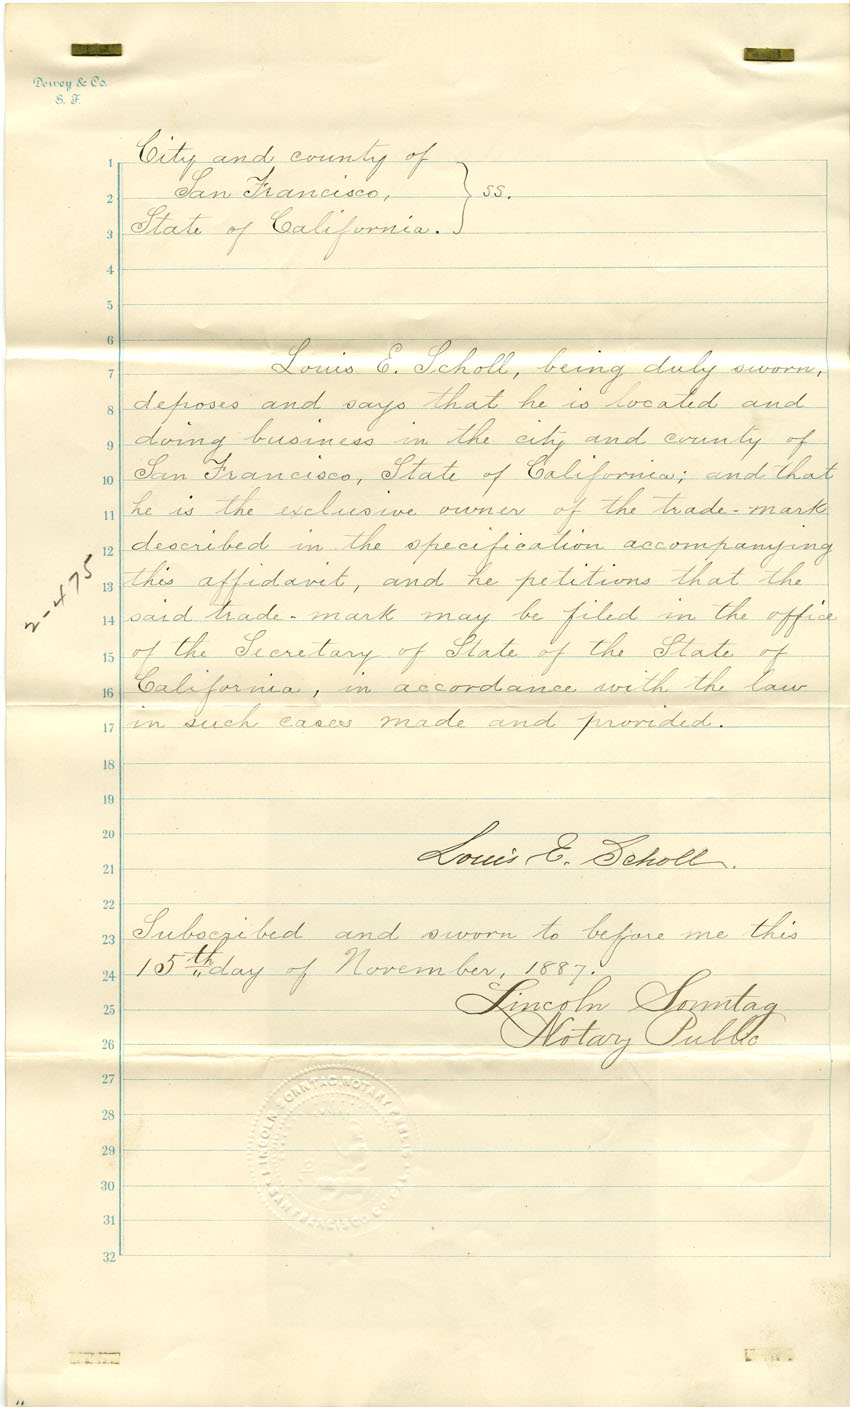 Dewey & Co.
S. F.
City and county of
San Francisco,
State of California.
} ss.
1
2
3
4
5
6
7
8
9
10
11
12
13
14
15
16
17
18
19
20
21
22
23
24
25
26
27
28
29
30
31
32
Louis E. Scholl, being duly sworn,
deposes and says that he is located and
doing business in the city and county of
San Francisco, State of California; and that
he is the exclusive owner of the trade-mark
described in the specification accompanying
this affidavit, and he petitions that the
said trade-mark may be filed in the office
of the Secretary of State of the State of
California, in accordance with the law
in such cases made and provided.
2-475
Louis E. Scholl.
Subscribed and sworn to before me this
15th day of November, 1887.
Lincoln Sonntag
Notary Public
LINCOLN SONNTAG, NOTARY PUBLIC
SAN FRANCISCO CO. CAL.